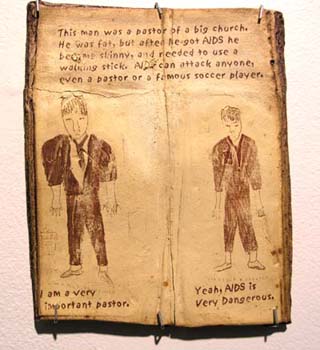 This man was a pastor of a big church.
He was fat, but after he got AIDS he
became skinny, and needed to use a
walking stick. AIDS can attack anyone,
even a pastor or a famous soccer player.
I am a very
important pastor.
Yeah, AIDS is
very dangerous.